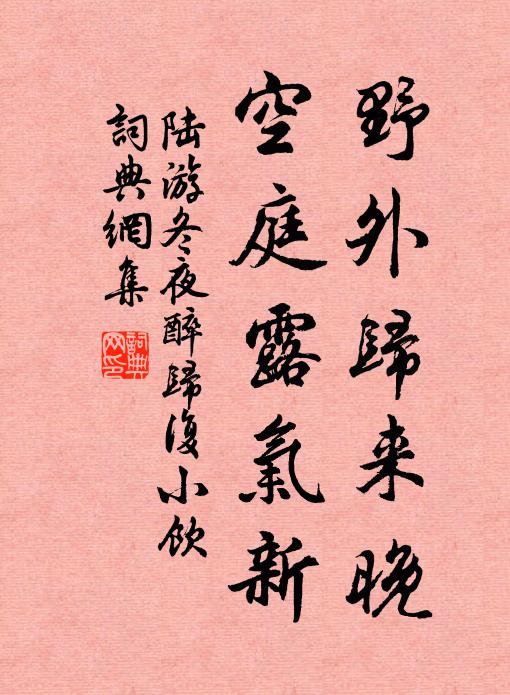 野外歸来晚
空庭露氣新
陆游冬夜醉歸復小飲
詞典網集
詞典
网印